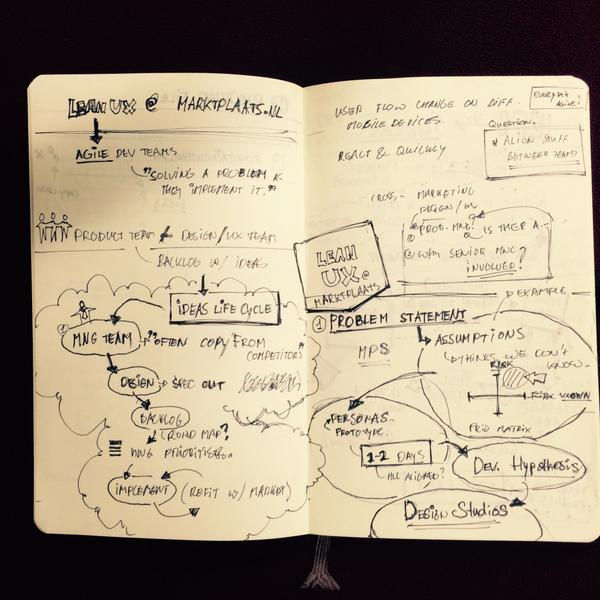 LEAN UX @ MARKTPLAATS.NL
AGILE DEV TEAMS
"SOLVING A PROBLEM AS
THEY IMPLEMENT IT."
PRODUCT TEAM & DESIGN/UX TEAM
BACKLOG W/ IDEAS
IDEAS LIFE CYCLE
MNG TEAM → "OFTEN COPY FROM
COMPETITORS"
DESIGN → SPEC OUT
BACKLOG
(ROAD MAP?
MNG PRIORITISES.
IMPLEMENT (REFIT W/ MARKET)
USER FLOW CHANGE ON DIFF.
MOBILE DEVICES.
REACT & QUICKLY
EVERYDAY
AGILE?
QUESTION.
* ALIGN STUFF
BETWEEN TEAMS
CROSS - MARKETING
DESIGN/UX
PROD. MNG.
IS THER A
② WHY SENIOR MNG
INVOLVED?
LEAN
UX @
MARKTPLAATS
EXAMPLE
① PROBLEM STATEMENT
MPS
ASSUMPTIONS
THINGS WE DON'T
KNOW.
RISK
KNOWN
PRIO MATRIX
PERSONAS.
PROTOTYPE.
1-2 DAYS
ALL ALIGNED?
DEV. HYPOTHESIS
DESIGN STUDIOS